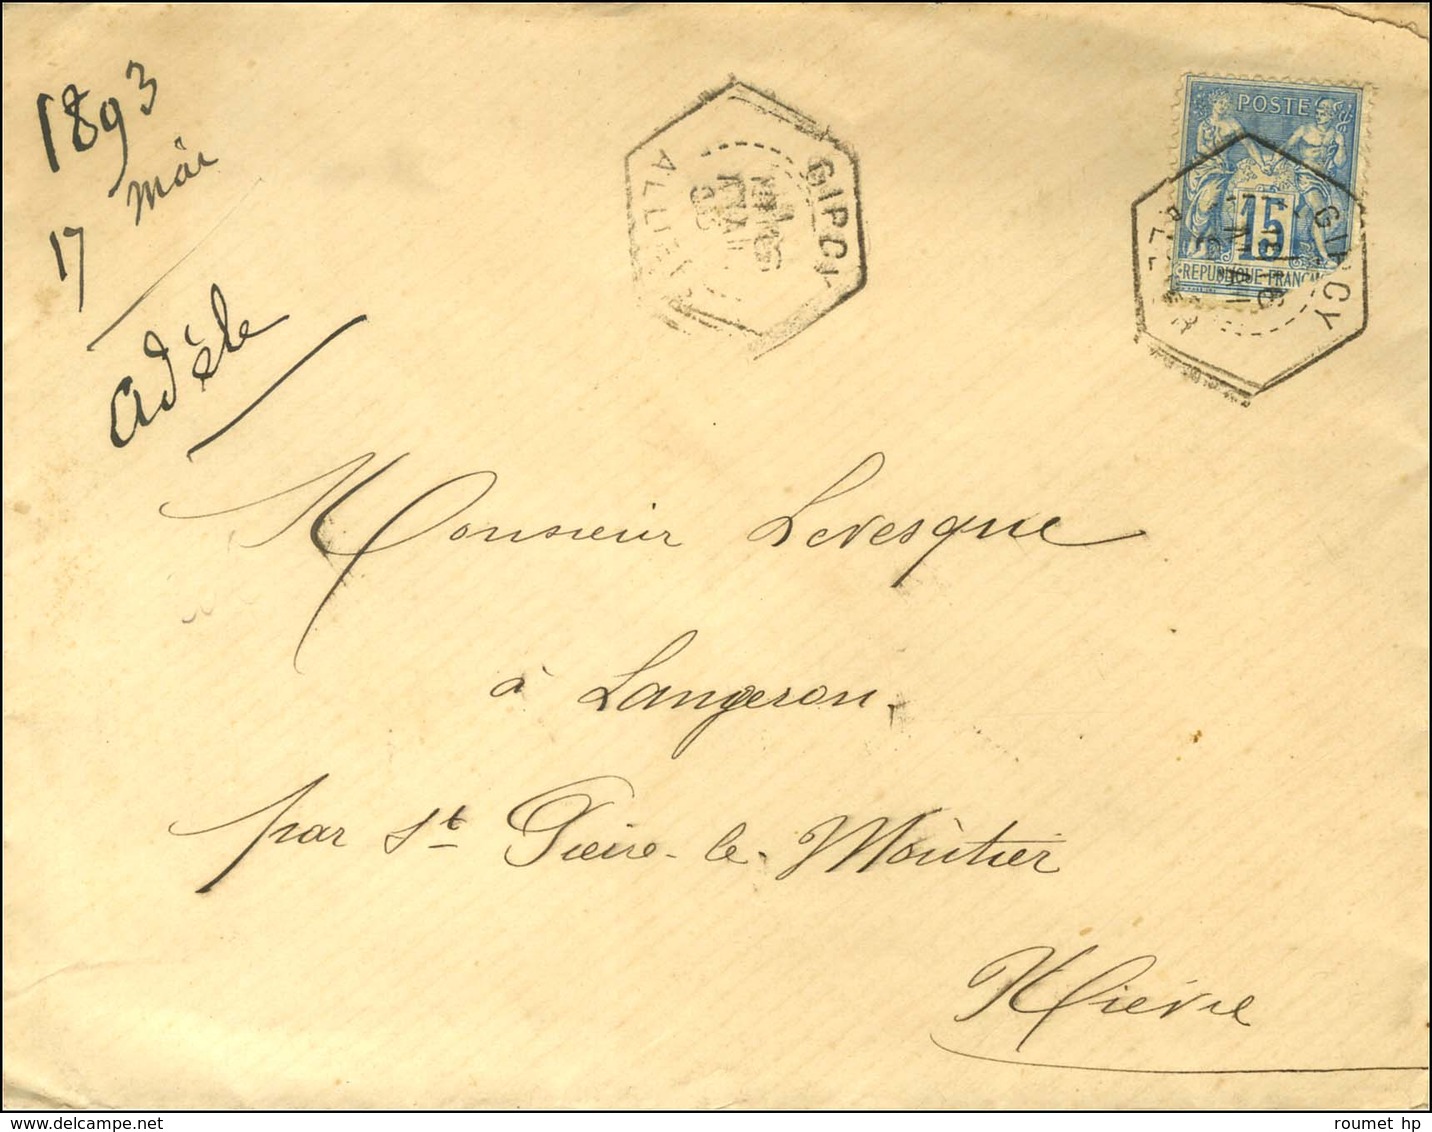 1893
17 mai
Adèle
GIPCY
ALLIER
POSTE
15
REPUBLIQUE FRANC
GIPCY
ALLIER
Monsieur Levesque
à Langeron
par St Pierre-le-Moûtier
Nièvre
roumet hp